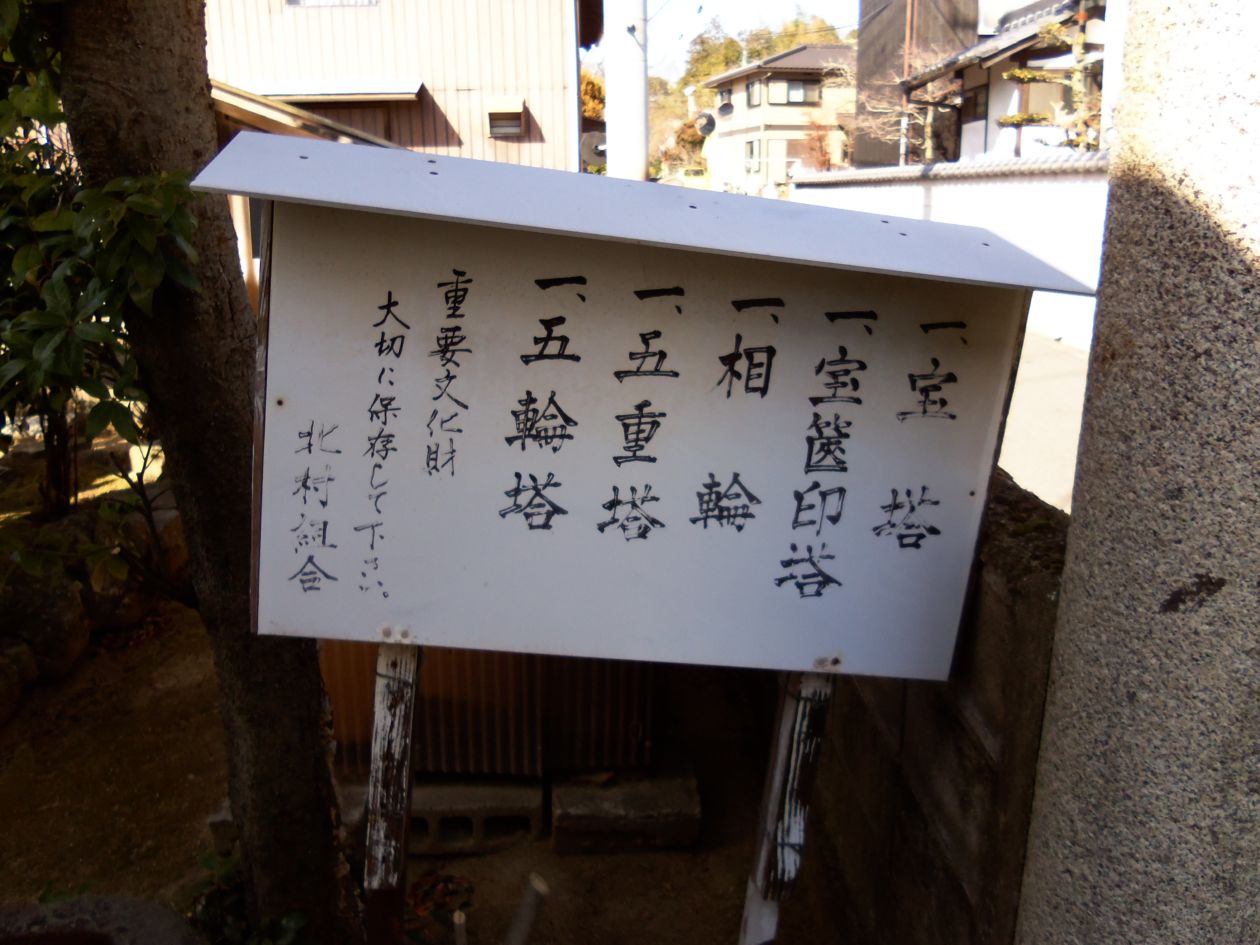 一、宝塔
一、宝篋印塔
一、相輪
一、五重塔
一、五輪塔
重要文化財
大切に保存して下さい。
北村組合